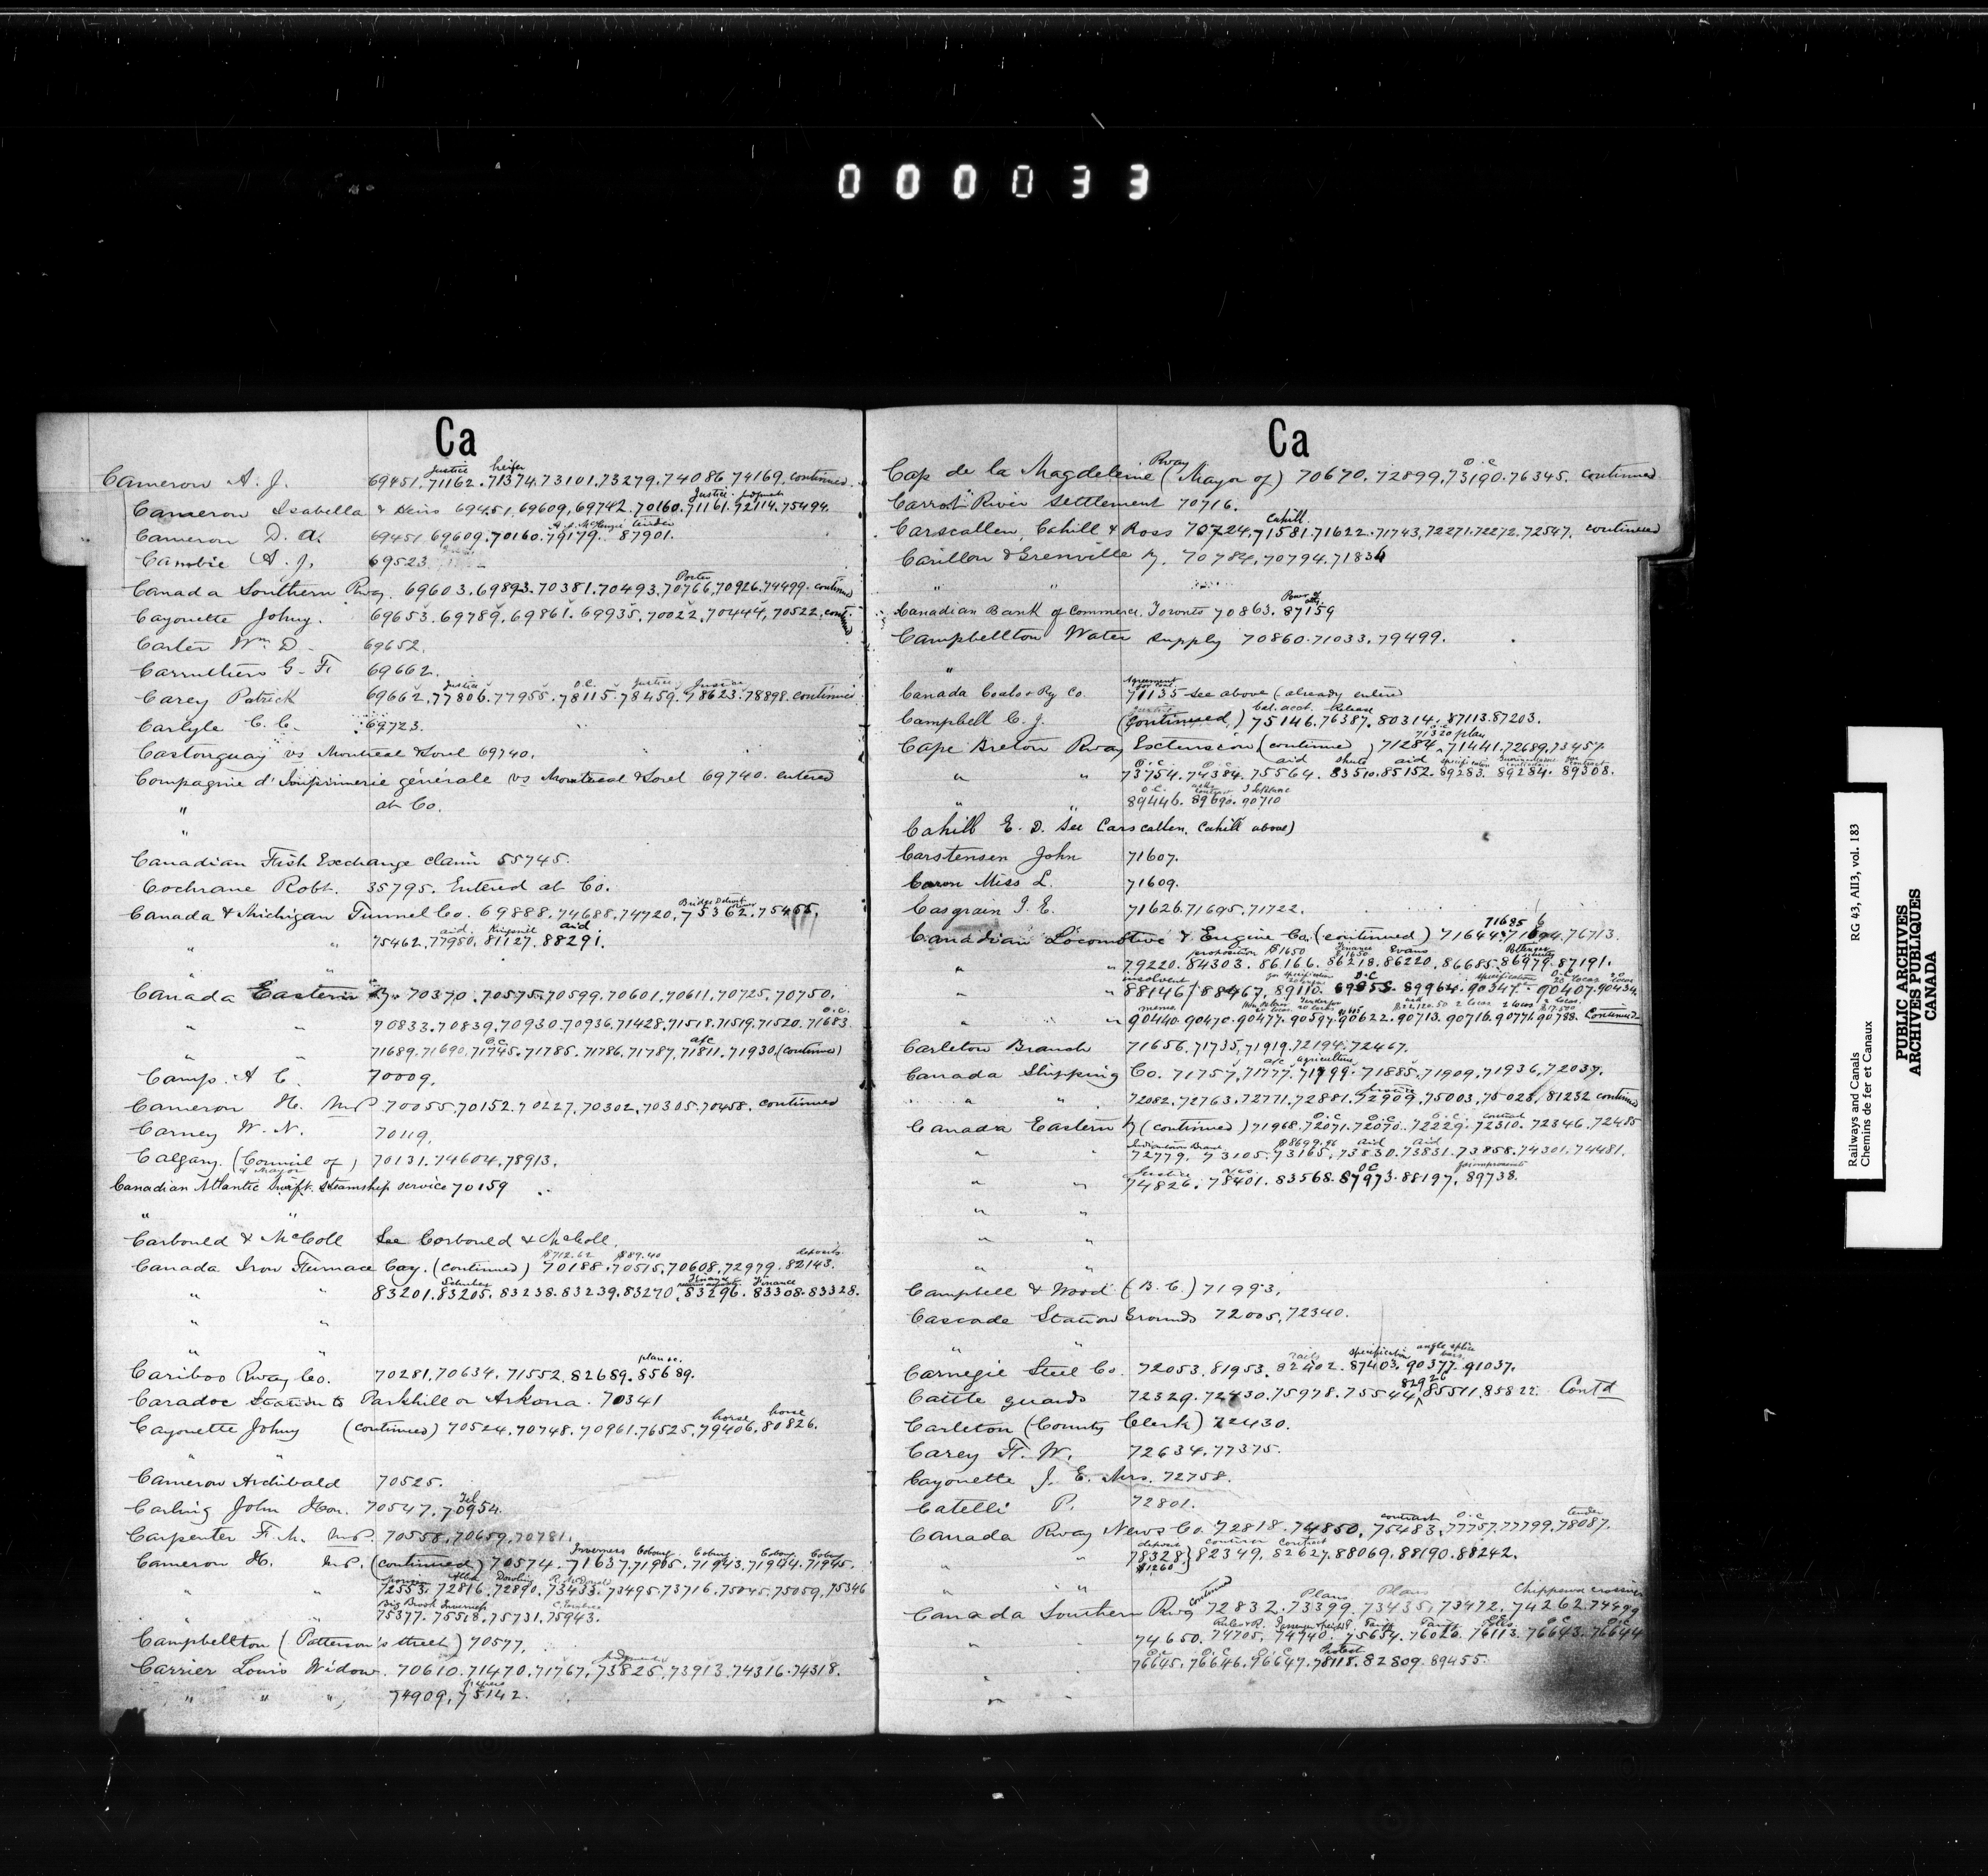 000033
Ca
Cameron A. J. 69451. 71162. 71374. 73101. 73279. 74086. 74169. continued
Justice heifer
Cameron Isabella & Heirs 69451. 69609. 69742. 70160. 71161. 72114. 75494.
Justice Judgment
Cameron D. A. 69451. 69609. 70160. 79179. 87901.
A. A. McKenzie tender
Cambie A. J. 69523
Canada Southern Rway. 69603. 69893. 70381. 70493. 70766. 70926. 74499. continued
Porter
Cayouette Johny. 69653. 69789. 69861. 69935. 70022. 70444. 70522. cont.
Carter Wm. D. 69652.
Carruthers G. F. 69662.
Carey Patrick 69662. 77806. 77955. 78115. 78459. 78623. 78898. continued
Justice O.C. Justice Justice
Carlyle C. C. 69723.
Castonguay vs Montreal & Sorel 69740.
Compagnie d'Imprimerie generale vs Montreal & Sorel 69740. entered
" at Co.
"
Canadian Fish Exchange claim 55745.
Cochrane Robt. 35795. Entered at Co.
Canada & Michigan Tunnel Co. 69888. 74688. 74720. 75362. 75455.
Bridge Detroit River
" " 75462. 77950. 81127. 88291.
aid. aid.
Canada Eastern Ry. 70370. 70575. 70599. 70601. 70611. 70725. 70750.
" " 70833. 70839. 70930. 70936. 71428. 71518. 71519. 71520. 71683
O.C.
" " 71689. 71690. 71745. 71785. 71786. 71787. 71811. 71930. (continued)
O.C. a/c
Camp. A. C. 70009.
Cameron H. M.P. 70055. 70152. 70227. 70302. 70305. 70458. continued
Carney W. N. 70119.
Calgary. (Council of) 70131. 74604. 78913.
& Mayor
Canadian Atlantic Swift Steamship service 70159
" "
Carbould & McColl See Corbould & McColl.
Canada Iron Furnace Coy. (continued) 70188. 70515. 70608. 72979. 82143.
$712.62 $89.40 deposits
" " 83201. 83205. 83238. 83239. 83270. 83296. 83308. 83328.
Finance Finance
" "
" "
Cariboo Rway Co. 70281. 70634. 71552. 82689. 85689.
plan &c.
Caradoc Station to Parkhill or Arkona. 70341
Cayouette Johny (continued) 70524. 70748. 70961. 76525. 79406. 80826.
horse horse
" "
Cameron Archibald 70525.
Carling John Hon. 70547. 70954.
Tel
Carpenter F. M. M.P. 70558. 70659. 70781.
Cameron H. M.P. (continued) 70574. 71637. 71905. 71943. 71944. 71945.
Inverness Cobourg. Coburg Coburg Coburg
" " 72553. 72816. 72890. 73433. 73495. 73716. 75045. 75059. 75346
Dowling R. McDonald
" " 75377. 75518. 75731. 75943.
Big Brook Inverness
Campbellton (Patterson's street) 70577.
Carrier Louis Widow. 70610. 71470. 71767. 73825. 73913. 74316. 74318.
Judgment
" " " 74909. 75142.
Ca
Cap de la Magdeleine (Mayor of) 70670. 72899. 73190. 76345. continued
Rway O.C
Carrot River Settlement 70716.
Carscallen, Cahill & Ross 70724. 71581. 71622. 71743. 72271. 72272. 72547. continued
Cahill.
Carillon & Grenville Ry. 70784. 70794. 71834
" "
Canadian Bank of Commerce. Toronto 70863. 87159
Power of atty.
Campbellton Water Supply 70860. 71033. 79499.
"
Canada Coals & Ry Co. 71135 see above (already entered
Agreement for coal.
Campbell C. J. (continued,) 75146. 76387. 80314. 87113. 87203.
Justice Cal. acct. Release
Cape Breton Rway Extension (continued) 71284. 71441. 72689. 73457.
71320 plan
" " 73754. 74384. 75564. 83510. 85152. 89283. 89284. 89308.
O.C. O.C. aid aid specification
" " 89446. 89690. 90710
O.C.
Cahill E. D. See Carscallen, Cahill above)
Carstensen John 71607.
Caron Miss L. 71609.
Casgrain J. E. 71626. 71695. 71722.
Canadian Locomotive & Engine Co. (continued) 71644. 71694. 76713.
71685
" " 79220. 84303. 86166. 86218. 86220. 86685. 86979. 87191.
proposition $1650 Finance Evans
" 88146. 88467. 89110. 89855. 89964. 90347. 90407. 90434.
insolvent for specification O.C specification O.C.
" " 90440. 90470. 90477. 90597. 90622. 90713. 90716. 90771. 90788. Continued
memo. 2 locos 2 locos 2 locos.
Carleton Branch 71656. 71735. 71919. 72194. 72467.
Canada Shipping Co. 71757. 71777. 71799. 71885. 71909. 71936. 72037.
a/c agriculture
" " 72082. 72763. 72771. 72881. 72909. 75003. 75028. 81232 continued
Canada Eastern Ry (continued) 71968. 72071. 72070. 72229. 72310. 72346. 72455
O.C O.C. O.C. contract
" 72779. 73105. 73165. 73830. 73831. 73858. 74301. 74481.
Indiantown Branch $8699.96 aid aid
" " 74826. 78401. 83568. 87973. 88197. 89738.
Justice O.C
" "
" "
" "
Campbell & Wood (B. C.) 71993.
Cascade Station Grounds 72005. 72340.
" "
Carnegie Steel Co. 72053. 81953. 82402. 87403. 90377. 91037.
rails specification angle splice bars.
Cattle guards 72329. 72430. 75978. 75544. 85511. 85822. Cont'd
82926
Carleton (County Clerk) 72430.
Carey H. W. 72634. 77375.
Cayouette J. E. Mrs. 72758.
Catelli P. 72801.
Canada Rway News Co. 72818. 74850. 75483. 77757. 77799. 78087.
contract O.C tender
" " 78328. 82349. 82627. 88069. 88190. 88242.
deposit $1260 contract
" "
Canada Southern Rwy 72832. 73399. 73435. 73472. 74262. 74499
continued Plans Plans Chippewa crossing
" " 74650. 74705. 74940. 75654. 76026. 76113. 76643. 76644
Rules & R. Passenger & freight Tariff Tariff Tolls O.C O.C
" 76645. 76646. 76647. 78118. 82809. 89455.
O.C O.C O.C Protest
" "
Railways and Canals
Chemins de fer et Canaux
RG 43, AII3, vol. 183
PUBLIC ARCHIVES
ARCHIVES PUBLIQUES
CANADA